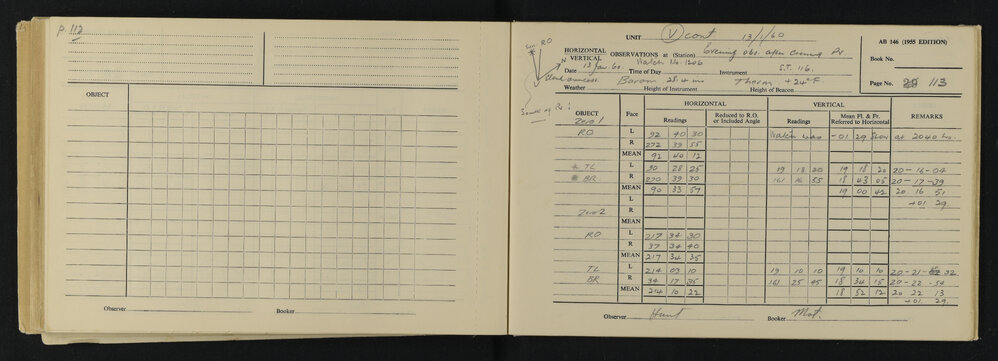 P. 112
OBJECT
Observer
Booker
UNIT V cont 13/1/60
AB 146 (1955 EDITION)
HORIZONTAL
VERTICAL OBSERVATIONS at (Station) Evening obs. after coming
Book No.
Date 13 Jan 60 Watch No. 1206
Time of Day Instrument S.T. 116.
Page No. 113
Weather Barom 28.4 ins Therm +24°F
Height of Instrument Height of Beacon
Sun RO
N
OBJECT Face HORIZONTAL VERTICAL REMARKS
Readings Reduced to R.O. or Included Angle Readings Mean Fl. & Fr. Referred to Horizontal
Zero 1
RO L 92 40 30 Watch was -01 29 slow at 2040 hrs.
R 272 39 55
MEAN 92 40 12
TL L 90 28 25 19 18 20 19 18 20 20-16-04
BR R 270 39 30 161 16 55 18 43 05 20-17-39
MEAN 90 33 57 19 00 42 20 16 51
L +01 29
Zero 2 R
MEAN
RO L 217 34 30
R 37 34 40
MEAN 217 34 35
TL L 214 03 10 19 10 10 19 10 10 20-21-32
BR R 34 17 35 161 25 45 18 34 15 20-22-54
MEAN 214 10 22 18 52 12 20 22 13
+01 29
Observer Hunt Booker Mot.